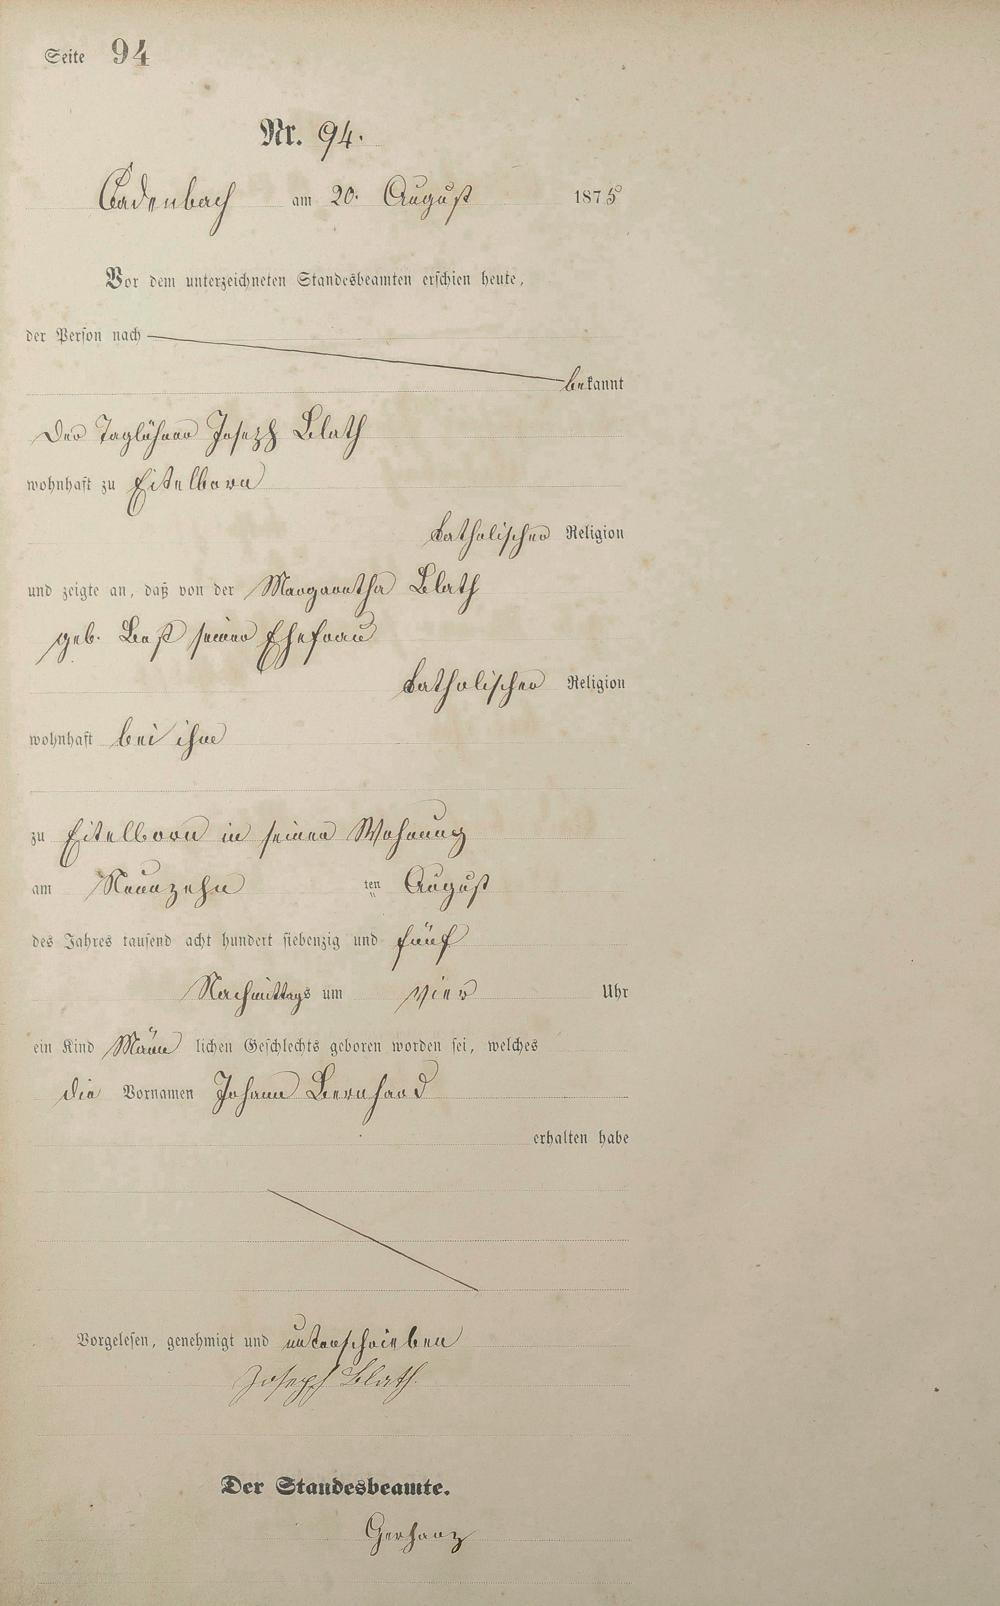 Seite 94
Nr. 94.
Cadenbach am 20. August 1875
Vor dem unterzeichneten Standesbeamten erschien heute,
der Person nach
bekannt
der Taglöhner Joseph Blath
wohnhaft zu Eitelborn
katholischer Religion
und zeigte an, daß von der Margaretha Blath
geb. seiner Ehefrau
katholischer Religion
wohnhaft bei ihm
zu Eitelborn in seiner Wohnung
am Neunzehn ten August
des Jahres tausend acht hundert siebenzig und fünf
Nachmittags um vier Uhr
ein Kind Männ lichen Geschlechts geboren worden sei, welches
die Vornamen Johann Bernhard
erhalten habe
Vorgelesen, genehmigt und unterschrieben
Joseph Blath.
Der Standesbeamte.
Gerhanz